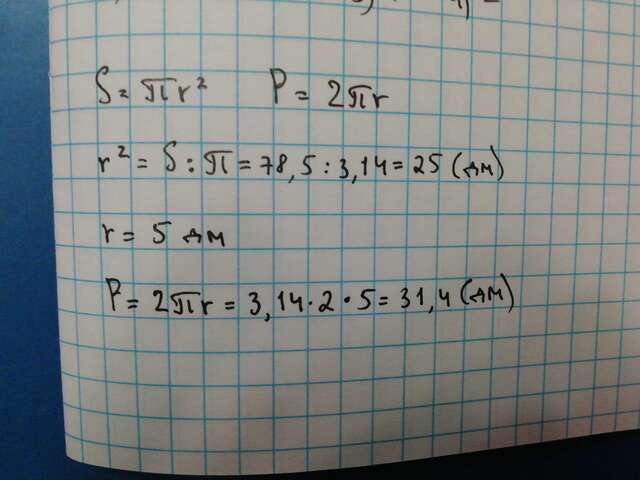 S = πr² P = 2πr
r² = S : π = 78,5 : 3,14 = 25 (дм)
r = 5 дм
P = 2πr = 3,14 · 2 · 5 = 31,4 (дм)